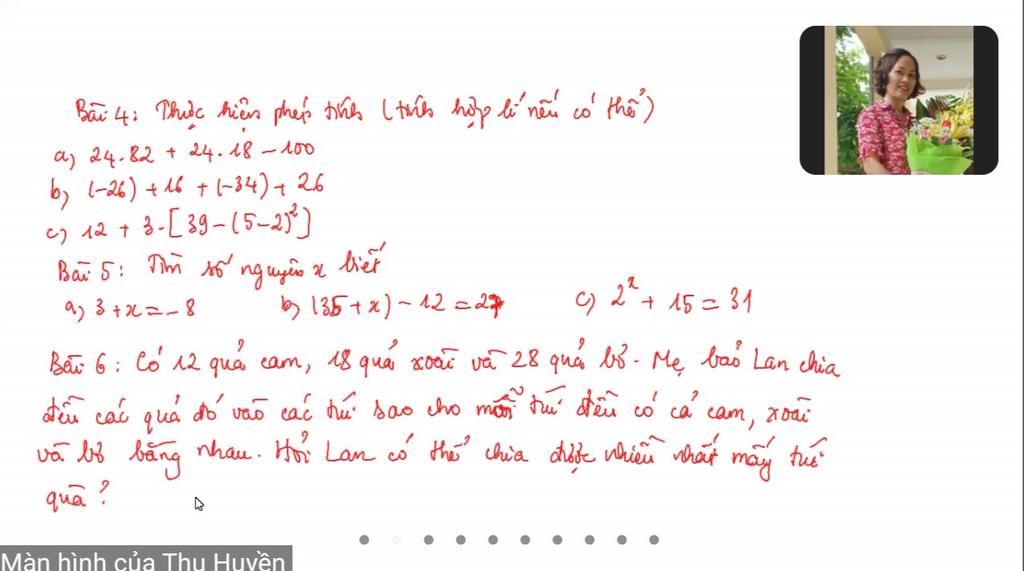 Bài 4: Thực hiện phép tính (tính hợp lí nếu có thể)
a) 24.82 + 24.18 - 100
b) (-26) + 16 + (-34) + 26
c) 12 + 3.[39 - (5-2)²]
Bài 5: Tìm số nguyên x biết
a) 3 + x = -8 b) (35 + x) - 12 = 27 c) 2ˣ + 15 = 31
Bài 6: Có 12 quả cam, 18 quả xoài và 28 quả bơ. Mẹ bảo Lan chia
đều các quả đó vào các túi sao cho mỗi túi đều có cả cam, xoài
và bơ bằng nhau. Hỏi Lan có thể chia được nhiều nhất mấy túi
quà?
Màn hình của Thu Huyền